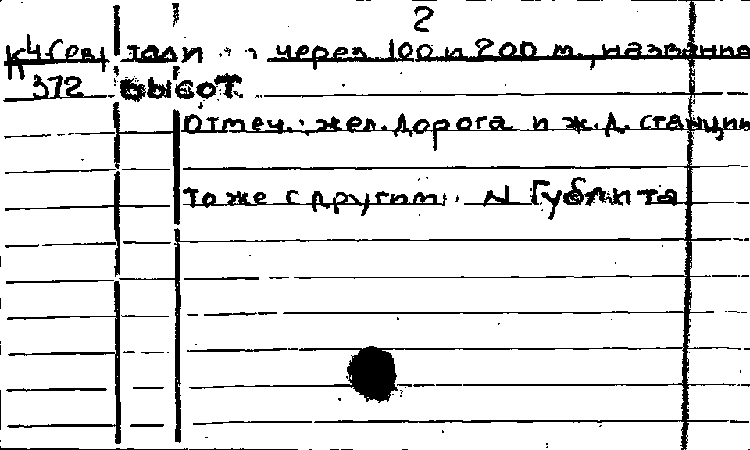 2
К4-(Сев) тали · · · через 100 и 200 м., названия
К 372 высот.
Отмеч.: жел. дорога и ж.д. станции
То же с другим N Губ лита